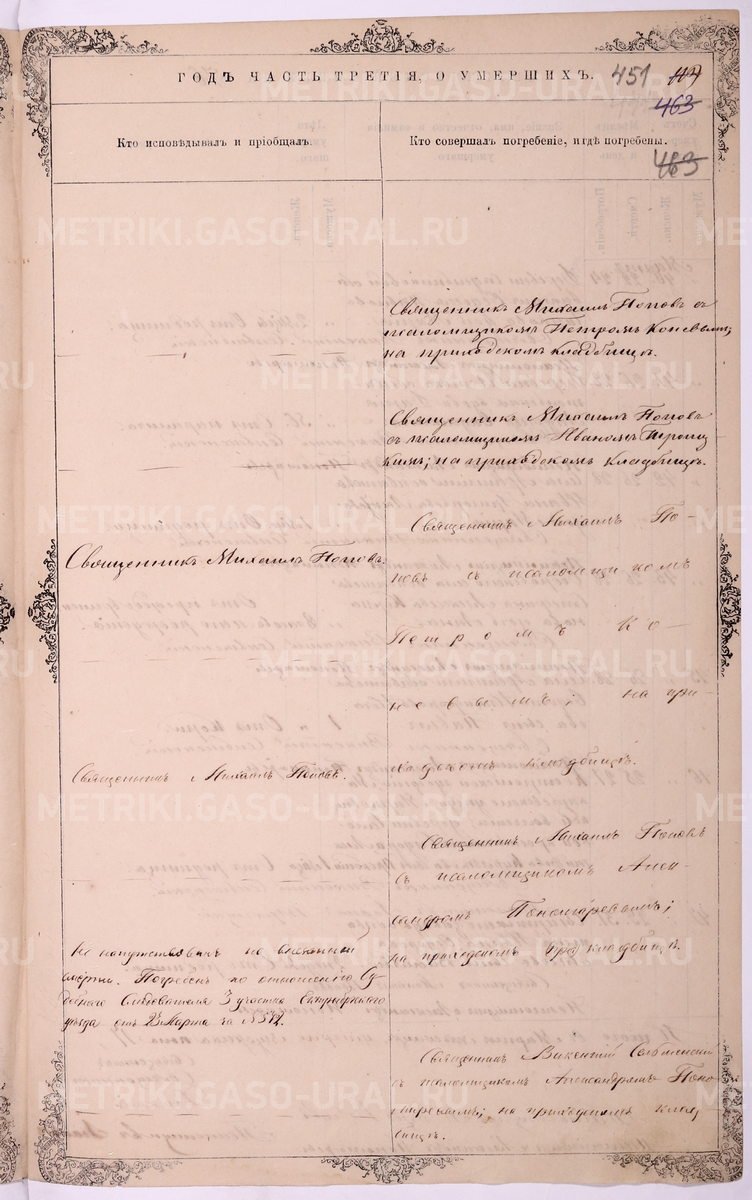 ГОДЪ ЧАСТЬ ТРЕТІЯ, О УМЕРШИХЪ.
451
463
463
Кто исповѣдывалъ и пріобщалъ.
Кто совершалъ погребеніе, и гдѣ погребены.
Священникъ Михаилъ Поповъ съ
псаломщикомъ Петромъ Коневымъ;
на приходскомъ кладбищѣ.
Священникъ Михаилъ Поповъ
съ псаломщикомъ Иваномъ Троиц
кимъ; на приходскомъ кладбищѣ.
Священникъ Михаилъ Поповъ.
Священникъ Михаилъ По-
повъ съ псаломщикомъ
Петромъ Ко-
невымъ; на при-
ходскомъ кладбищѣ.
Священникъ Михаилъ Поповъ.
Священникъ Михаилъ Поповъ
съ псаломщикомъ Алек-
сандромъ Пономаревымъ;
на приходскомъ кладбищѣ.
Не напутствованъ по внезапной
смерти. Погребенъ по отношенію Су-
дебнаго Слѣдователя 3 участка
уѣзда отъ 23 Марта за №
Священникъ Викентій
съ псаломщикомъ Александромъ Поно
маревымъ; на приходскомъ клад
бищѣ.
METRIKI.GASO-URAL.RU